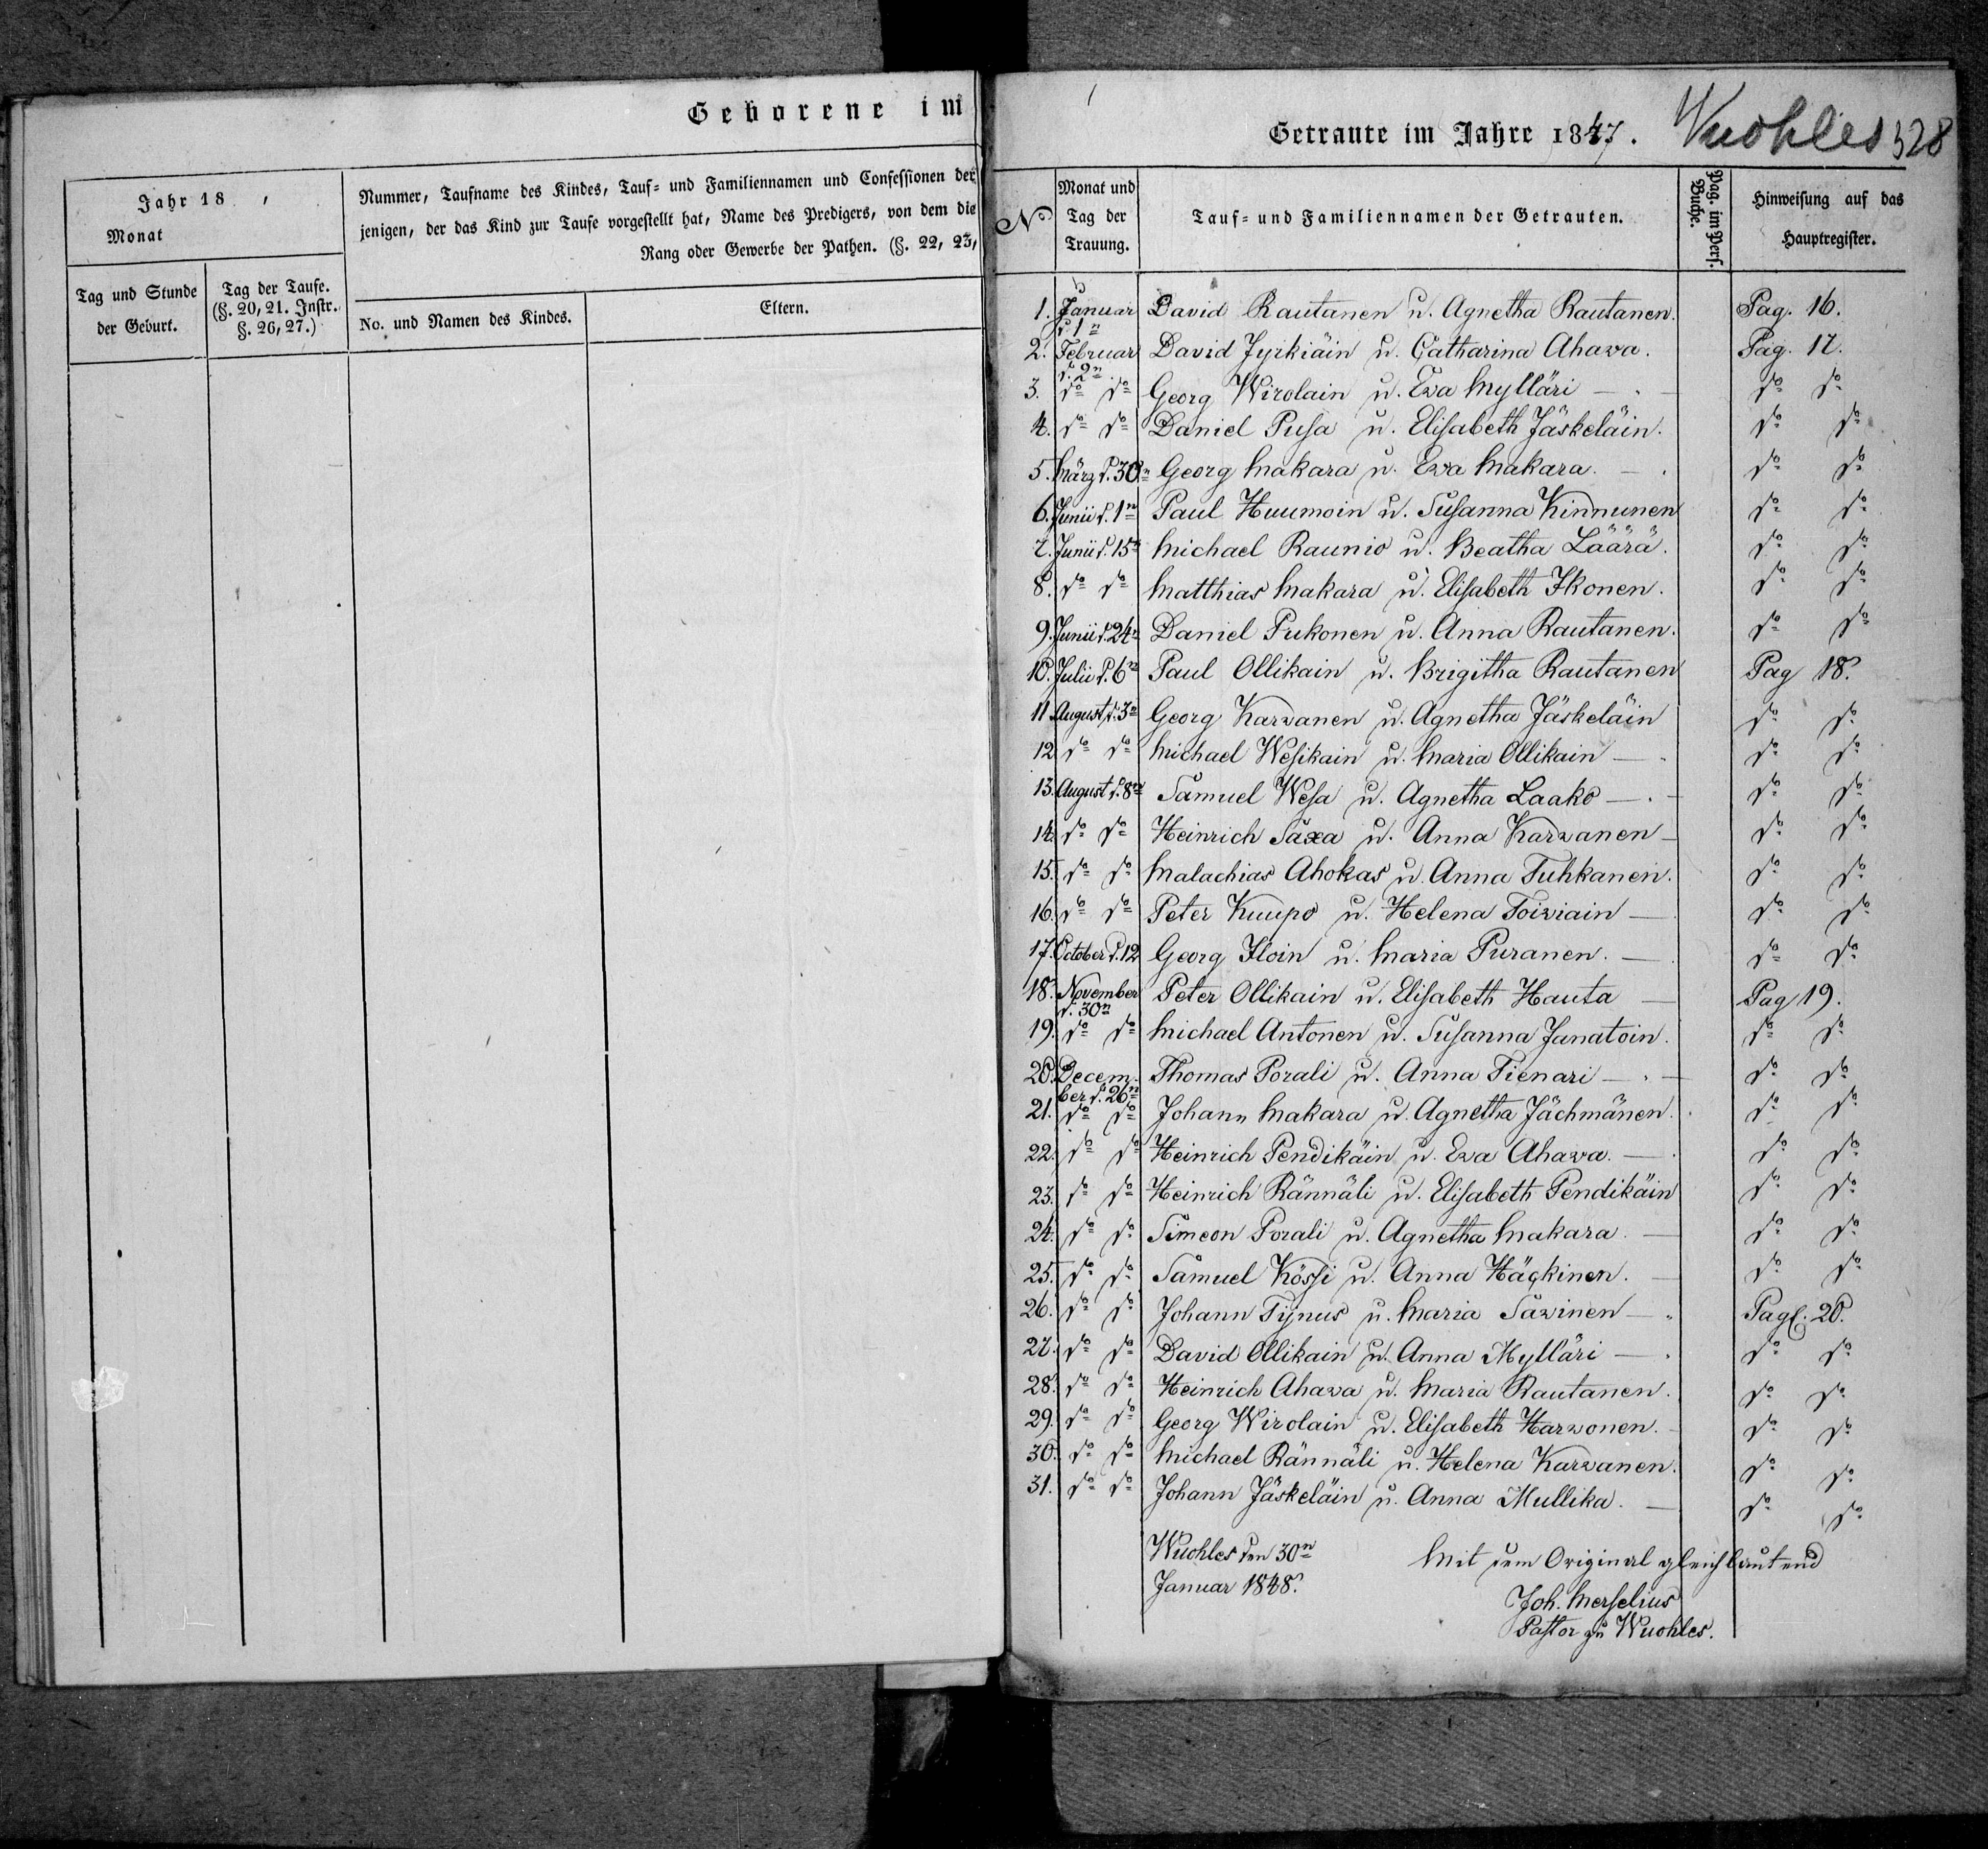 Geborene im
Jahr 18 ,
Monat
Nummer, Taufname des Kindes, Tauf- und Familiennamen und Confessionen der-
jenigen, der das Kind zur Taufe vorgestellt hat, Name des Predigers, von dem die
Rang oder Gewerbe der Pathen. (§. 22, 23,
Tag und Stunde
der Geburt.
Tag der Taufe.
(§. 20, 21. Instr.
§. 26, 27.)
No. und Namen des Kindes.
Eltern.
Getraute im Jahre 1847. Wuohles 328
No
Monat und
Tag der
Trauung.
Tauf- und Familiennamen der Getrauten.
Pag. im Pers.
Buche.
Hinweisung auf das
Hauptregister.
1. Januar d. 1n David Rautanen u. Agnetha Rautanen. Pag. 16.
2. Februar d. 2n David Jyrkiäin u. Catharina Ahawa. Pag. 17.
3. do do Georg Wirolain u. Ewa Mylläri — do do
4. do do Daniel Pusa u. Elisabeth Jäskeläin. do do
5. März d. 30n Georg Makara u. Ewa Makara. — do do
6. Junii d. 1n Paul Huumoin u. Susanna Kinnunen do do
7. Junii d. 15n Michael Raunio u. Beatha Läärä. do do
8. do do Matthias Makara u. Elisabeth Ikonen. do do
9. Junii d. 24n Daniel Pukonen u. Anna Rautanen. do do
10. Julii d. 6n Paul Ollikain u. Brigitha Rautanen Pag 18.
11. August d. 3n Georg Karwanen u. Agnetha Jäskeläin do do
12. do do Michael Wesikain u. Maria Ollikain — do do
13. August d. 8n Samuel Wesa u. Agnetha Laako — do do
14. do do Heinrich Saxa u. Anna Karwanen — do do
15. do do Malachias Ahokas u. Anna Tuhkanen. do do
16. do do Peter Kuupo u. Helena Toiwiain — do do
17. October d. 12 Georg Iloin u. Maria Puranen. — do do
18. November d. 30n Peter Ollikain u. Elisabeth Hauta — Pag 19.
19. do do Michael Antonen u. Susanna Janatoin. do do
20. Decem- ber d. 26n Thomas Porali u. Anna Tienari — do do
21. do do Johann Makara u. Agnetha Jächmänen. do do
22. do do Heinrich Pendikäin u. Ewa Ahawa. — do do
23. do do Heinrich Rännäli u. Elisabeth Pendikäin do do
24. do do Simeon Porali u. Agnetha Makara. — do do
25. do do Samuel Kössi u. Anna Häckinen. — do do
26. do do Johann Tijnus u. Maria Sawinen — Pag. 20.
27. do do David Ollikain u. Anna Mylläri — do do
28. do do Heinrich Ahawa u. Maria Rautanen. do do
29. do do Georg Wirolain u. Elisabeth Harwonen. do do
30. do do Michael Rännäli u. Helena Karwanen. do do
31. do do Johann Jäskeläin u. Anna Mullika. — do do
Wuohles den 30n Mit dem Original gleichlautend
Januar 1848.
Joh. Merselius
Pastor zu Wuohles.